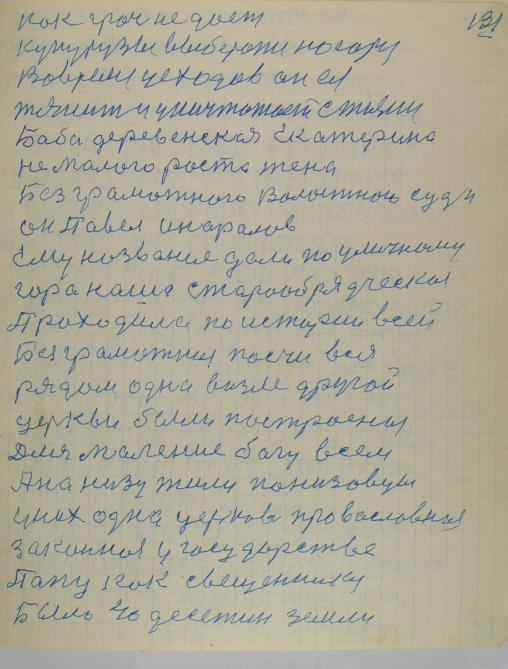 131
как грач не доет
Кукурузы выберати на гору
Вовремя уходов он ея
тягнит и уничтожает с
Баба деревенская Екатерина
не малого роста жена
Безграмотного Волостного суди
он Павел
Ему название дали по уличному
гора наша старообрядческая
Проходила по истории всей
Безграмотная почи вся
рядом одна возле другой
церкви были построены
Для маление богу всем
Ана низу жили понизовуи
у них одна церковь провославная
законная у государстве
Папу как священнику
Было 40 десетин земли